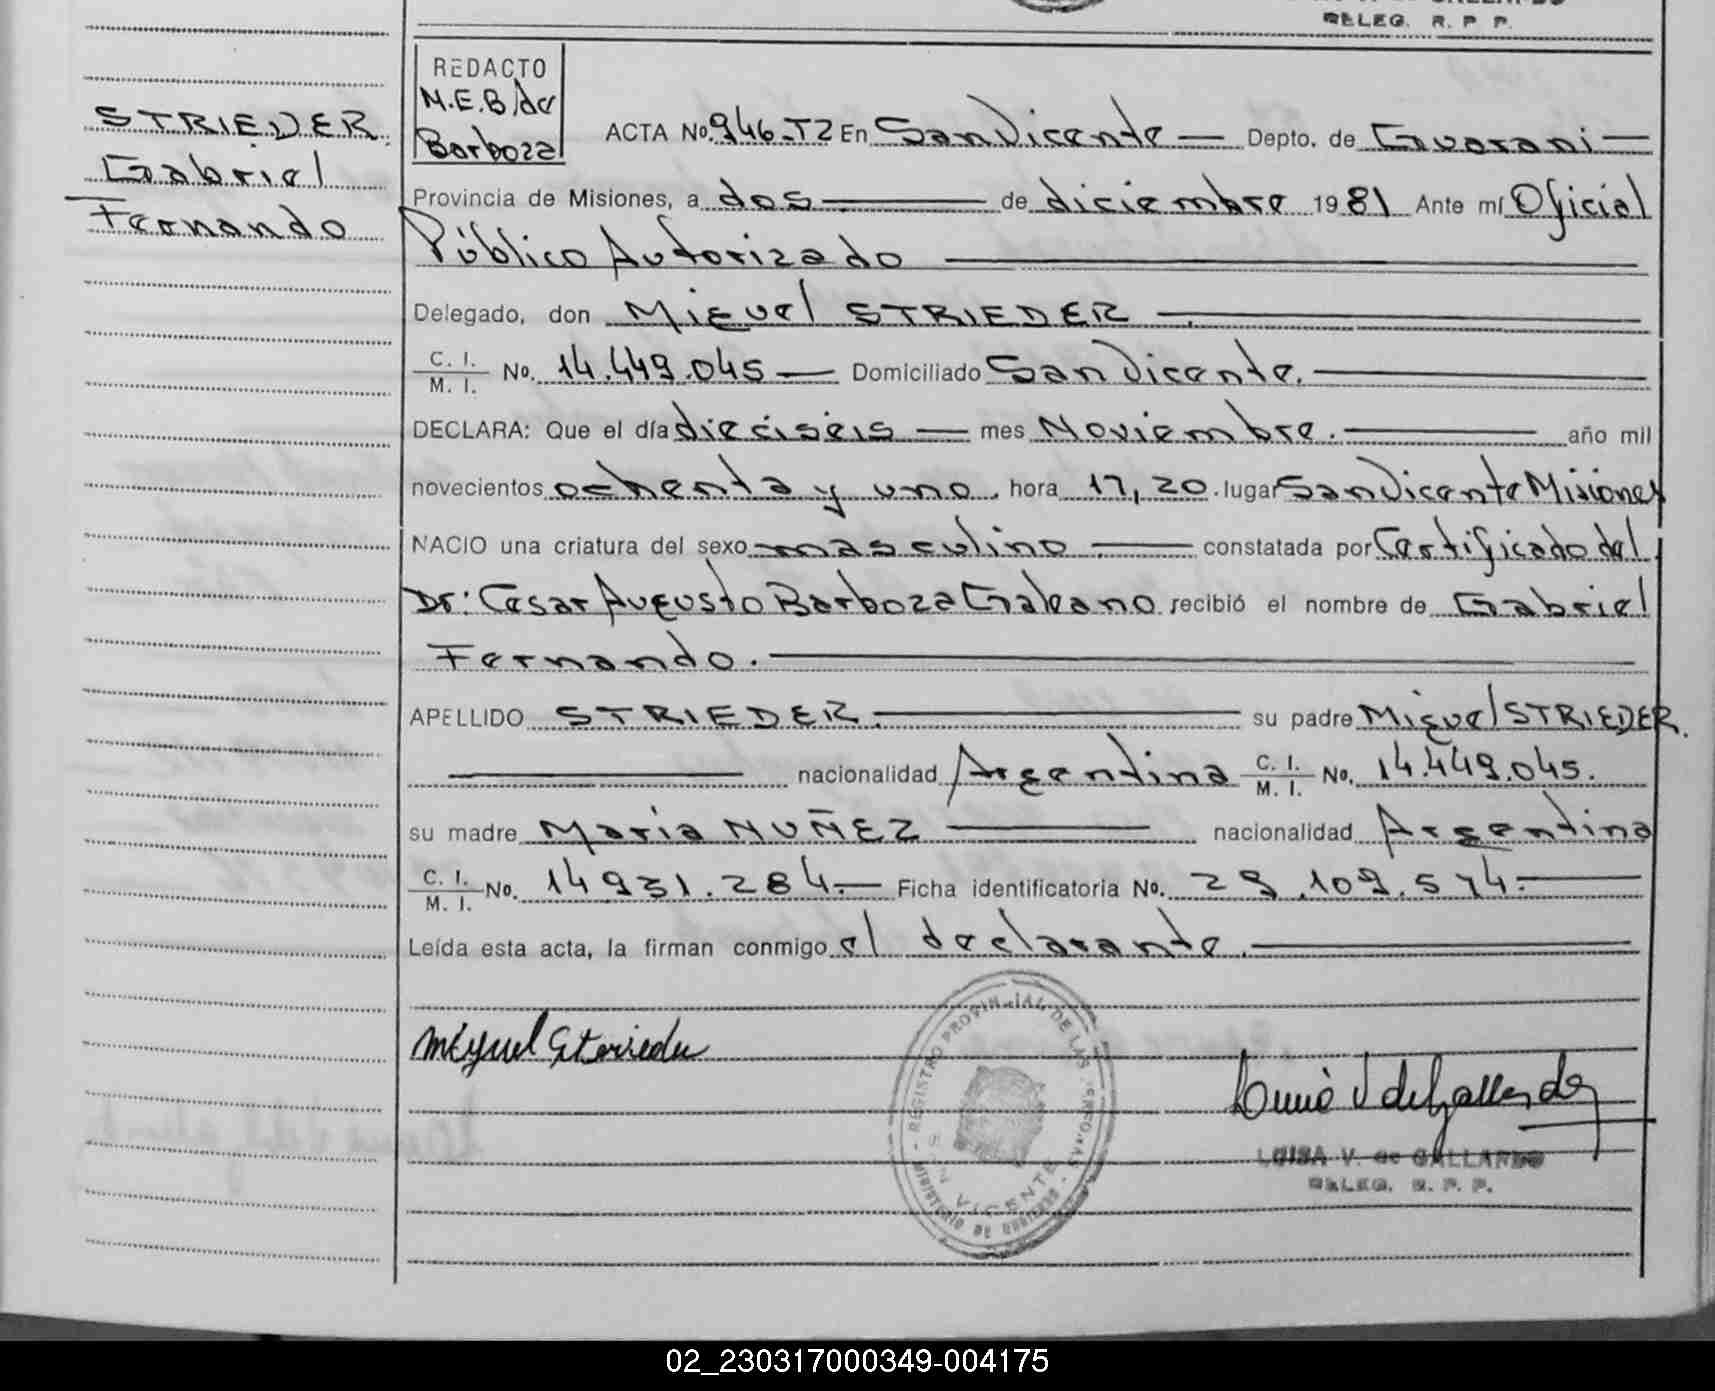 DELEG. R. P. P.
REDACTO
M.E.B/de
Barboza
STRIEDER
Gabriel
Fernando
ACTA No. 946-T2 En San Vicente — Depto. de Guarani —
Provincia de Misiones, a dos — de diciembre 1981 Ante mí Oficial
Público Autorizado —
Delegado, don Miguel STRIEDER —
C. I.
M. I. No. 14.449.045 — Domiciliado San Vicente. —
DECLARA: Que el día dieciséis — mes Noviembre. — año mil
novecientos ochenta y uno. hora 17,20. lugar San Vicente Misiones
NACIO una criatura del sexo masculino — constatada por Certificado del
Dr: Cesar Augusto Barboza Galeano recibió el nombre de Gabriel
Fernando. —
APELLIDO STRIEDER. — su padre Miguel STRIEDER.
— nacionalidad Argentina C. I.
M. I. No. 14.449.045.
su madre Maria NUÑEZ — nacionalidad Argentina
C. I.
M. I. No. 14931.284.— Ficha identificatoria No. 29.109.574.—
Leída esta acta, la firman conmigo el declarante. —
Miguel Strieder
REGISTRO PROVINCIAL DE LAS PERSONAS
SAN VICENTE
MINISTERIO DE GOBIERNO
LUISA V. de GALLARDO
DELEG. R. P. P.
02_230317000349-004175